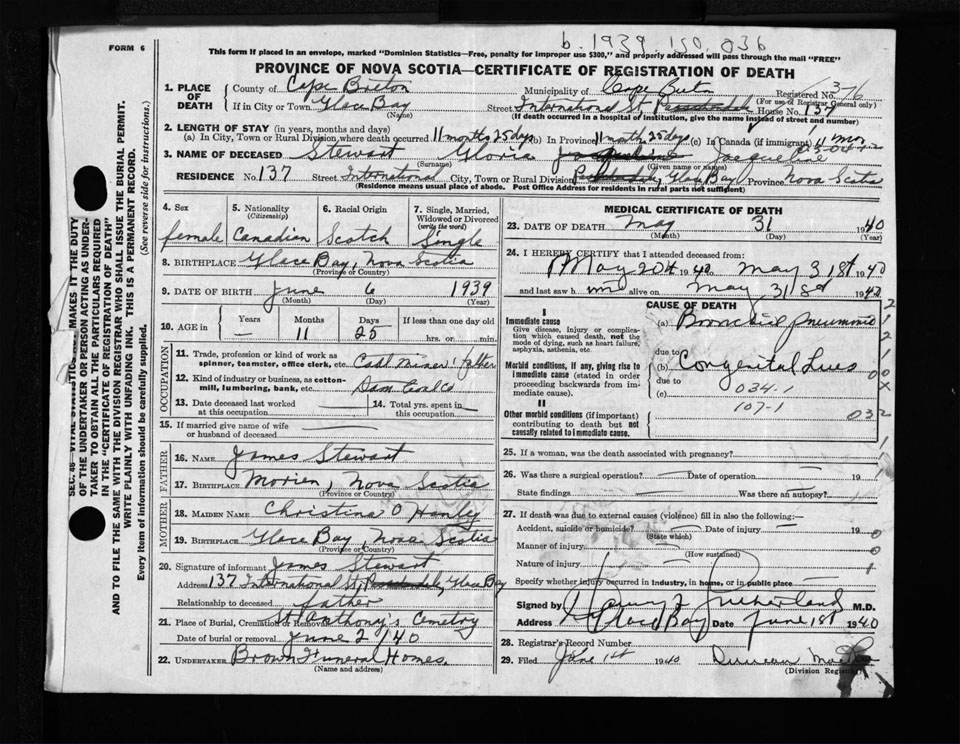 b. 1939 150. 036
FORM 6
This form if placed in an envelope, marked "Dominion Statistics—Free, penalty for improper use $300," and properly addressed will pass through the mail "FREE"
PROVINCE OF NOVA SCOTIA—CERTIFICATE OF REGISTRATION OF DEATH
1. PLACE OF DEATH
County of Cape Breton Municipality of Cape Breton Registered No. 376
(For use of Registrar General only)
If in City or Town Glace Bay Street International St House No. 137
(Name)
(If death occurred in a hospital of institution, give the name instead of street and number)
2. LENGTH OF STAY (in years, months and days)
(a) In City, Town or Rural Division where death occurred 11 months 25 days (b) In Province 11 month 25 days (c) In Canada (if immigrant) 11 mo.
3. NAME OF DECEASED Stewart Gloria Jacqueline
(Surname) (Given name or names)
RESIDENCE No. 137 Street International City, Town or Rural Division Glace Bay Province Nova Scotia
(Residence means usual place of abode. Post Office Address for residents in rural parts not sufficient)
4. Sex female
5. Nationality (Citizenship) Canadian
6. Racial Origin Scotch
7. Single, Married, Widowed or Divorced (write the word) Single
8. BIRTHPLACE Glace Bay, Nova Scotia
(Province or Country)
9. DATE OF BIRTH June 6 1939
(Month) (Day) (Year)
10. AGE in Years — Months 11 Days 25 If less than one day hrs. or min.
OCCUPATION
11. Trade, profession or kind of work as spinner, teamster, office clerk, etc. Coal miner father
12. Kind of industry or business, as cotton-mill, lumbering, bank, etc. Dom Coal Co
13. Date deceased last worked at this occupation
14. Total yrs. spent in this occupation
15. If married give name of wife or husband of deceased
FATHER
16. NAME James Stewart
17. BIRTHPLACE Morien, Nova Scotia
(Province or Country)
MOTHER
18. MAIDEN NAME Christina O Hanly
19. BIRTHPLACE Glace Bay, Nova Scotia
(Province or Country)
20. Signature of informant James Stewart
Address 137 International St, Glace Bay
Relationship to deceased father
21. Place of Burial, Cremation or Removal St Anthony's Cemetry
Date of burial or removal June 2/40
22. UNDERTAKER Brown Funeral Homes.
(Name and address)
MEDICAL CERTIFICATE OF DEATH
23. DATE OF DEATH May 31 1940
(Month) (Day) (Year)
24. I HEREBY CERTIFY that I attended deceased from:
May 20th 1940 to May 31st 1940
and last saw h alive on May 31st 1940
CAUSE OF DEATH
I
Immediate cause
Give disease, injury or complication which caused death, not the mode of dying, such as heart failure, asphyxia, asthenia, etc.
(a) Bronchial pneumonia
due to
Morbid conditions, if any, giving rise to immediate cause (stated in order proceeding backwards from immediate cause).
(b) Congenital Lues
due to
(c) 034-1
107-1
II
Other morbid conditions (if important) contributing to death but not causally related to immediate cause.
032
25. If a woman, was the death associated with pregnancy?
26. Was there a surgical operation? Date of operation 19
State findings Was there an autopsy?
27. If death was due to external causes (violence) fill in also the following:—
Accident, suicide or homicide? Date of injury 19
(State which)
Manner of injury
(How sustained)
Nature of injury
Specify whether injury occurred in industry, in home, or in public place
Signed by Harvey Sutherland M.D.
Address Glace Bay Date June 1st 1940
28. Registrar's Record Number
29. Filed June 1st 1940 Duncan
(Division Registrar)
SEC. 48
MAKES IT THE DUTY
OF THE UNDERTAKER OR PERSON ACTING AS UNDERTAKER TO OBTAIN ALL THE PARTICULARS REQUIRED
IN THE "CERTIFICATE OF REGISTRATION OF DEATH"
AND TO FILE THE SAME WITH THE DIVISION REGISTRAR WHO SHALL ISSUE THE BURIAL PERMIT.
WRITE PLAINLY WITH UNFADING INK. THIS IS A PERMANENT RECORD.
Every item of information should be carefully supplied. (See reverse side for instructions.)